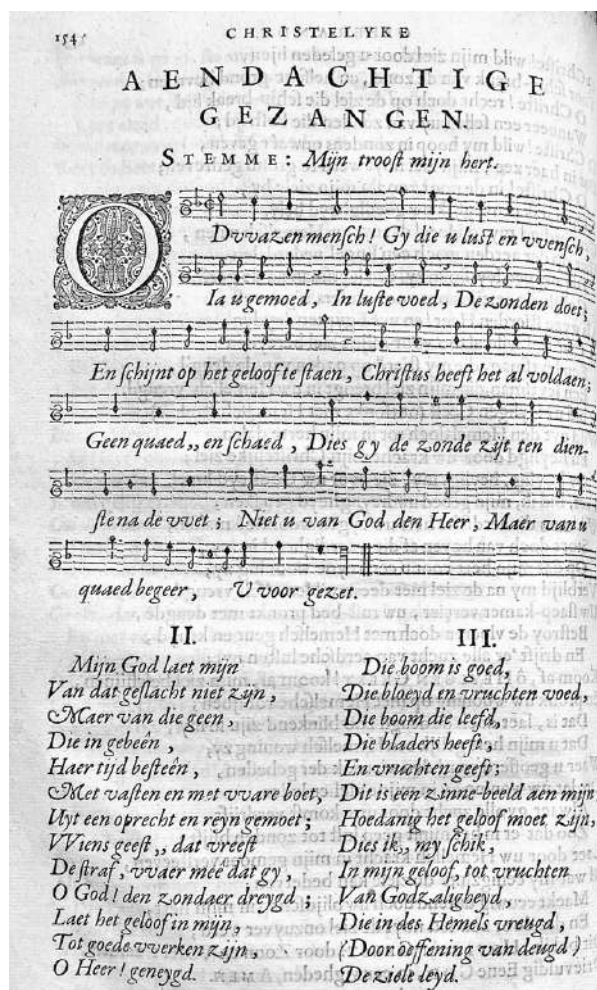 154
CHRISTELYKE
AENDACHTIGE
GEZANGEN.
STEMME: Mijn trooſt mijn hert.
O Dvvazen menſch! Gy die u luſt en vvenſch,
Ia u gemoed, In luſte voed, De zonden doet;
En ſchijnt op het geloof te ſtaen, Chriſtus heeft het al voldaen;
Geen quaed,, en ſchaed, Dies gy de zonde zijt ten dien-
ſte na de vvet; Niet u van God den Heer, Maer van u
quaed begeer, U voor gezet.
II.
Mijn God laet mijn
Van dat geſlacht niet zijn,
Maer van die geen,
Die in gebeên,
Haer tijd beſteên,
Met vaſten en met vvare boet,
Uyt een oprecht en reyn gemoet;
VViens geeſt,, dat vreeſt
De ſtraf, vvaer meê dat gy,
O God! den zondaer dreygd;
Laet het geloof in mijn,
Tot goede vverken zijn,
O Heer! geneygd.
III.
Die boom is goed,
Die bloeyd en vruchten voed,
Die boom die leefd,
Die bladers heeft,
En vruchten geeft;
Dit is een zinne-beeld aen mijn
Hoedanig het geloof moet zijn,
Dies ik,, my ſchik,
In mijn geloof, tot vruchten
Van Godzaligheyd,
Die in des Hemels vreugd,
(Door oeffening van deugd)
De ziele leyd.